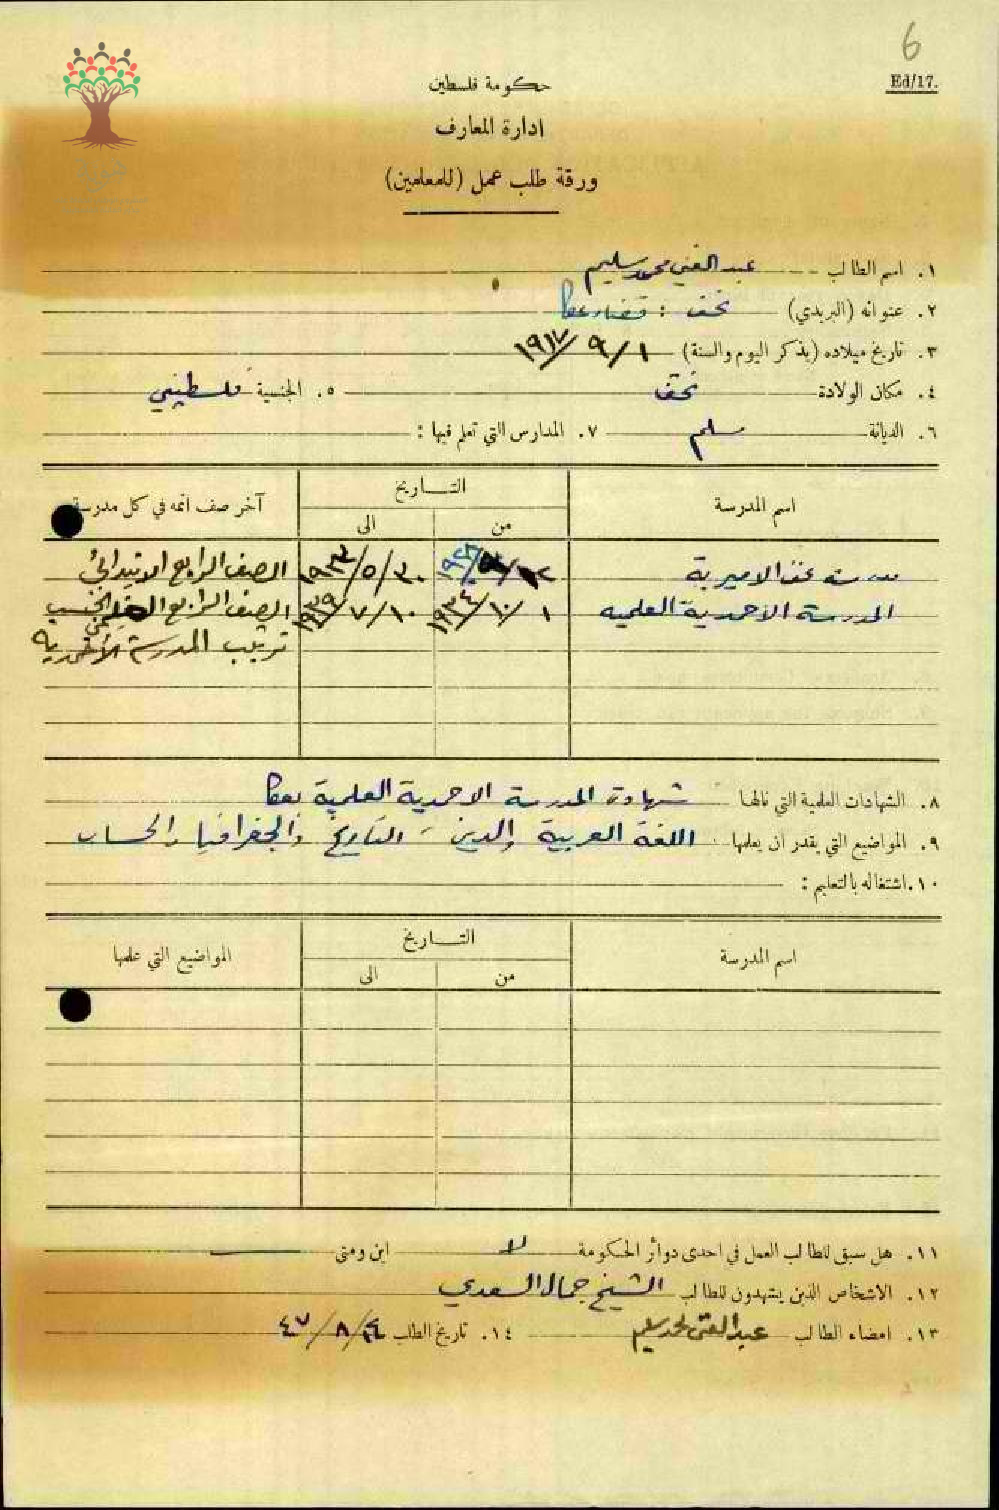 6
Ed/17.
جذور
حكومة فلسطين
ادارة المعارف
ورقة طلب عمل (للمعلمين)
١. اسم الطالب عبد الغني محمد سليم
٢. عنوانه (البريدي) نحف : قضاء عكا
٣. تاريخ ميلاده (يذكر اليوم والسنة) ١ / ٩ / ١٩١٧
٤. مكان الولادة نحف ٥. الجنسية فلسطيني
٦. الديانة مسلم ٧. المدارس التي تعلم فيها :
اسم المدرسة التـــاريخ آخر صف اتمه في كل مدرسة
من الى
مدرسة نحف الاميرية ٣٠/٥/١٩٣٣ الصف الرابع الابتدائي
المدرسة الاحمدية العلمية ١/١٠/١٩٣٤ ١٠/٧/١٩٣٩ الصف الرابع
ترتيب المدرسة الأحمدية
٨. الشهادات العلمية التي نالها شهادة المدرسة الاحمدية العلمية بعكا
٩. المواضيع التي يقدر ان يعلمها اللغة العربية والدين - التاريخ والجغرافيا والحساب
١٠. اشتغاله بالتعليم :
اسم المدرسة التـــاريخ المواضيع التي علمها
من الى
١١. هل سبق للطالب العمل في احدى دوائر الحكومة لا اين ومتى
١٢. الاشخاص الذين يتعهدون للطالب الشيخ جمال السعدي
١٣. امضاء الطالب عبد الغني محمد سليم ١٤. تاريخ الطلب / ٨ / ٤٧